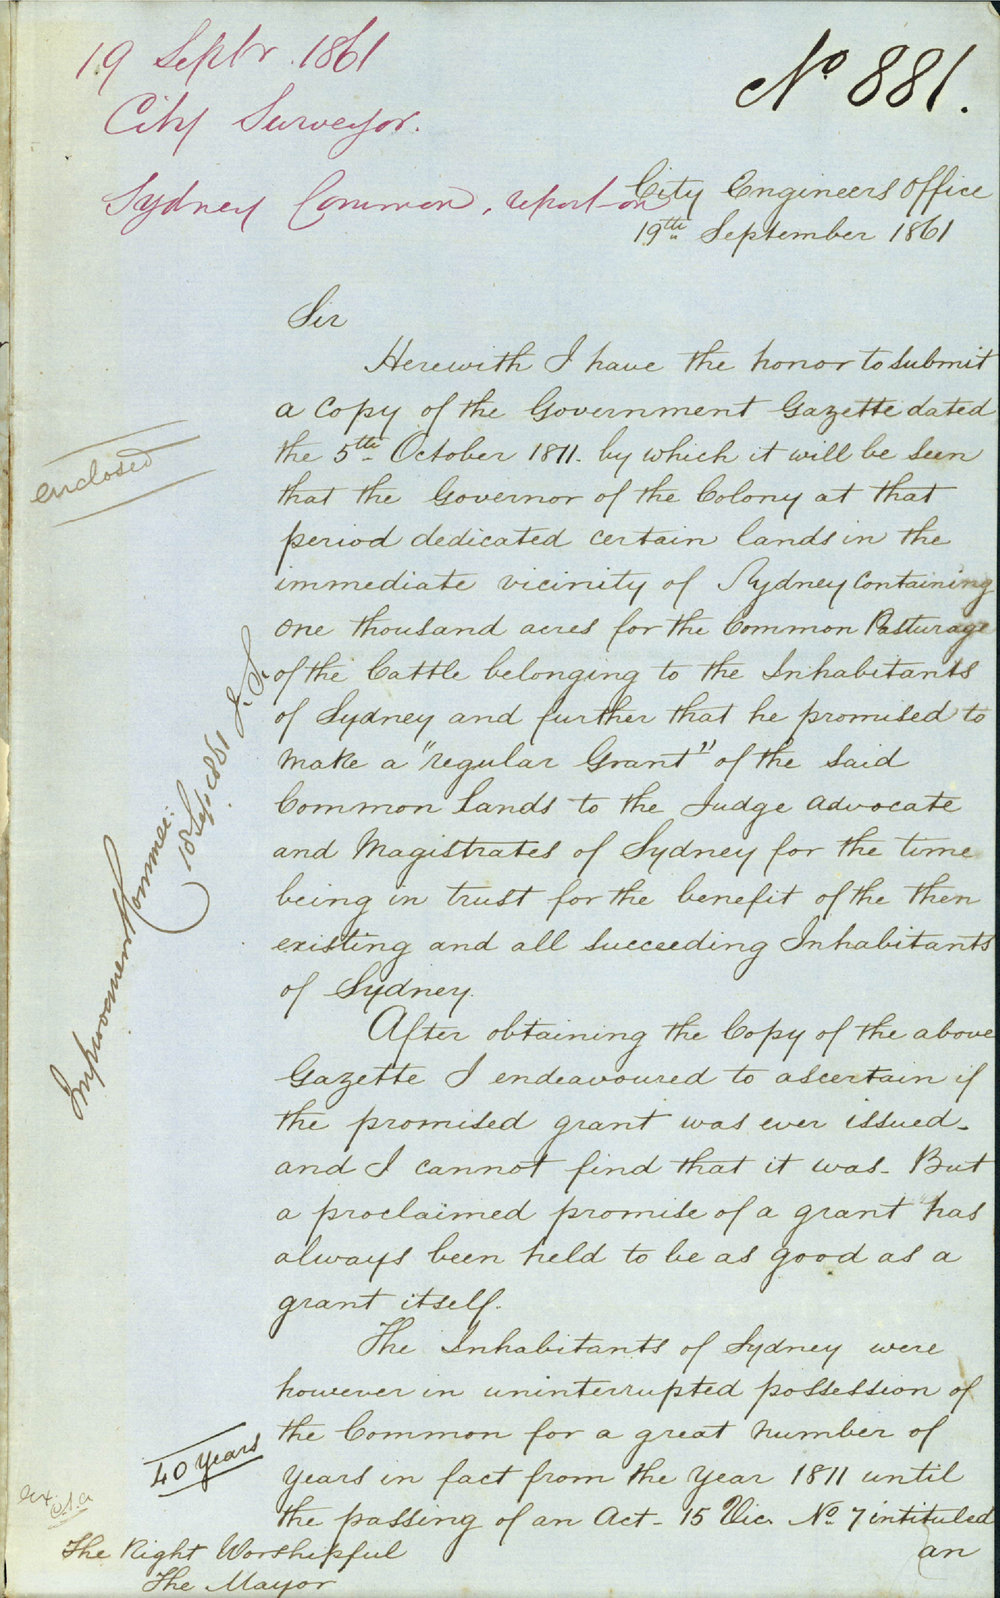 19 Septr. 1861
City Surveyor.
Sydney Common, report on
No 881.
City Engineers Office
19th September 1861
Sir
Herewith I have the honor to submit
a Copy of the Government Gazette dated
the 5th October 1811. by which it will be seen
that the Governor of the Colony at that
period dedicated certain lands in the
immediate vicinity of Sydney containing
one thousand acres for the Common Pasturage
of the Cattle belonging to the Inhabitants
of Sydney and further that he promised to
make a "regular Grant" of the said
Common lands to the Judge Advocate
and Magistrates of Sydney for the time
being in trust for the benefit of the then
existing and all succeeding Inhabitants
of Sydney.
After obtaining the Copy of the above
Gazette I endeavoured to ascertain if
the promised grant was ever issued.
and I cannot find that it was. But
a proclaimed promise of a grant has
always been held to be as good as a
grant itself.
The Inhabitants of Sydney were
however in uninterrupted possession of
the Common for a great number of
years in fact from the year 1811 until
the passing of an Act - 15 Vic. No 7 intituled
an
enclosed
Improvement Commee:
18 Sep. 1861 J. S.
40 years
The Right Worshipful
The Mayor